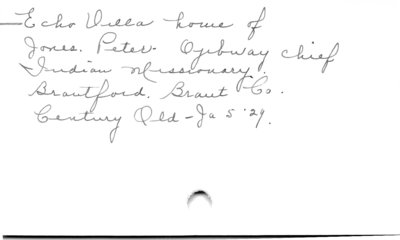 Echo Villa home of
Jones. Peter. Ojibway chief
Indian Missionary.
Brantford. Brant Co.
Century Old - Ja 5 '29.